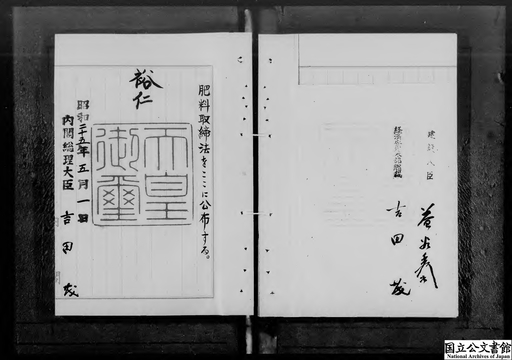 肥料取締法をここに公布する。
裕仁
天皇御璽
昭和二十五年五月一日
内閣総理大臣 吉田茂
建設大臣 益谷秀次
吉田茂
国立公文書館
National Archives of Japan